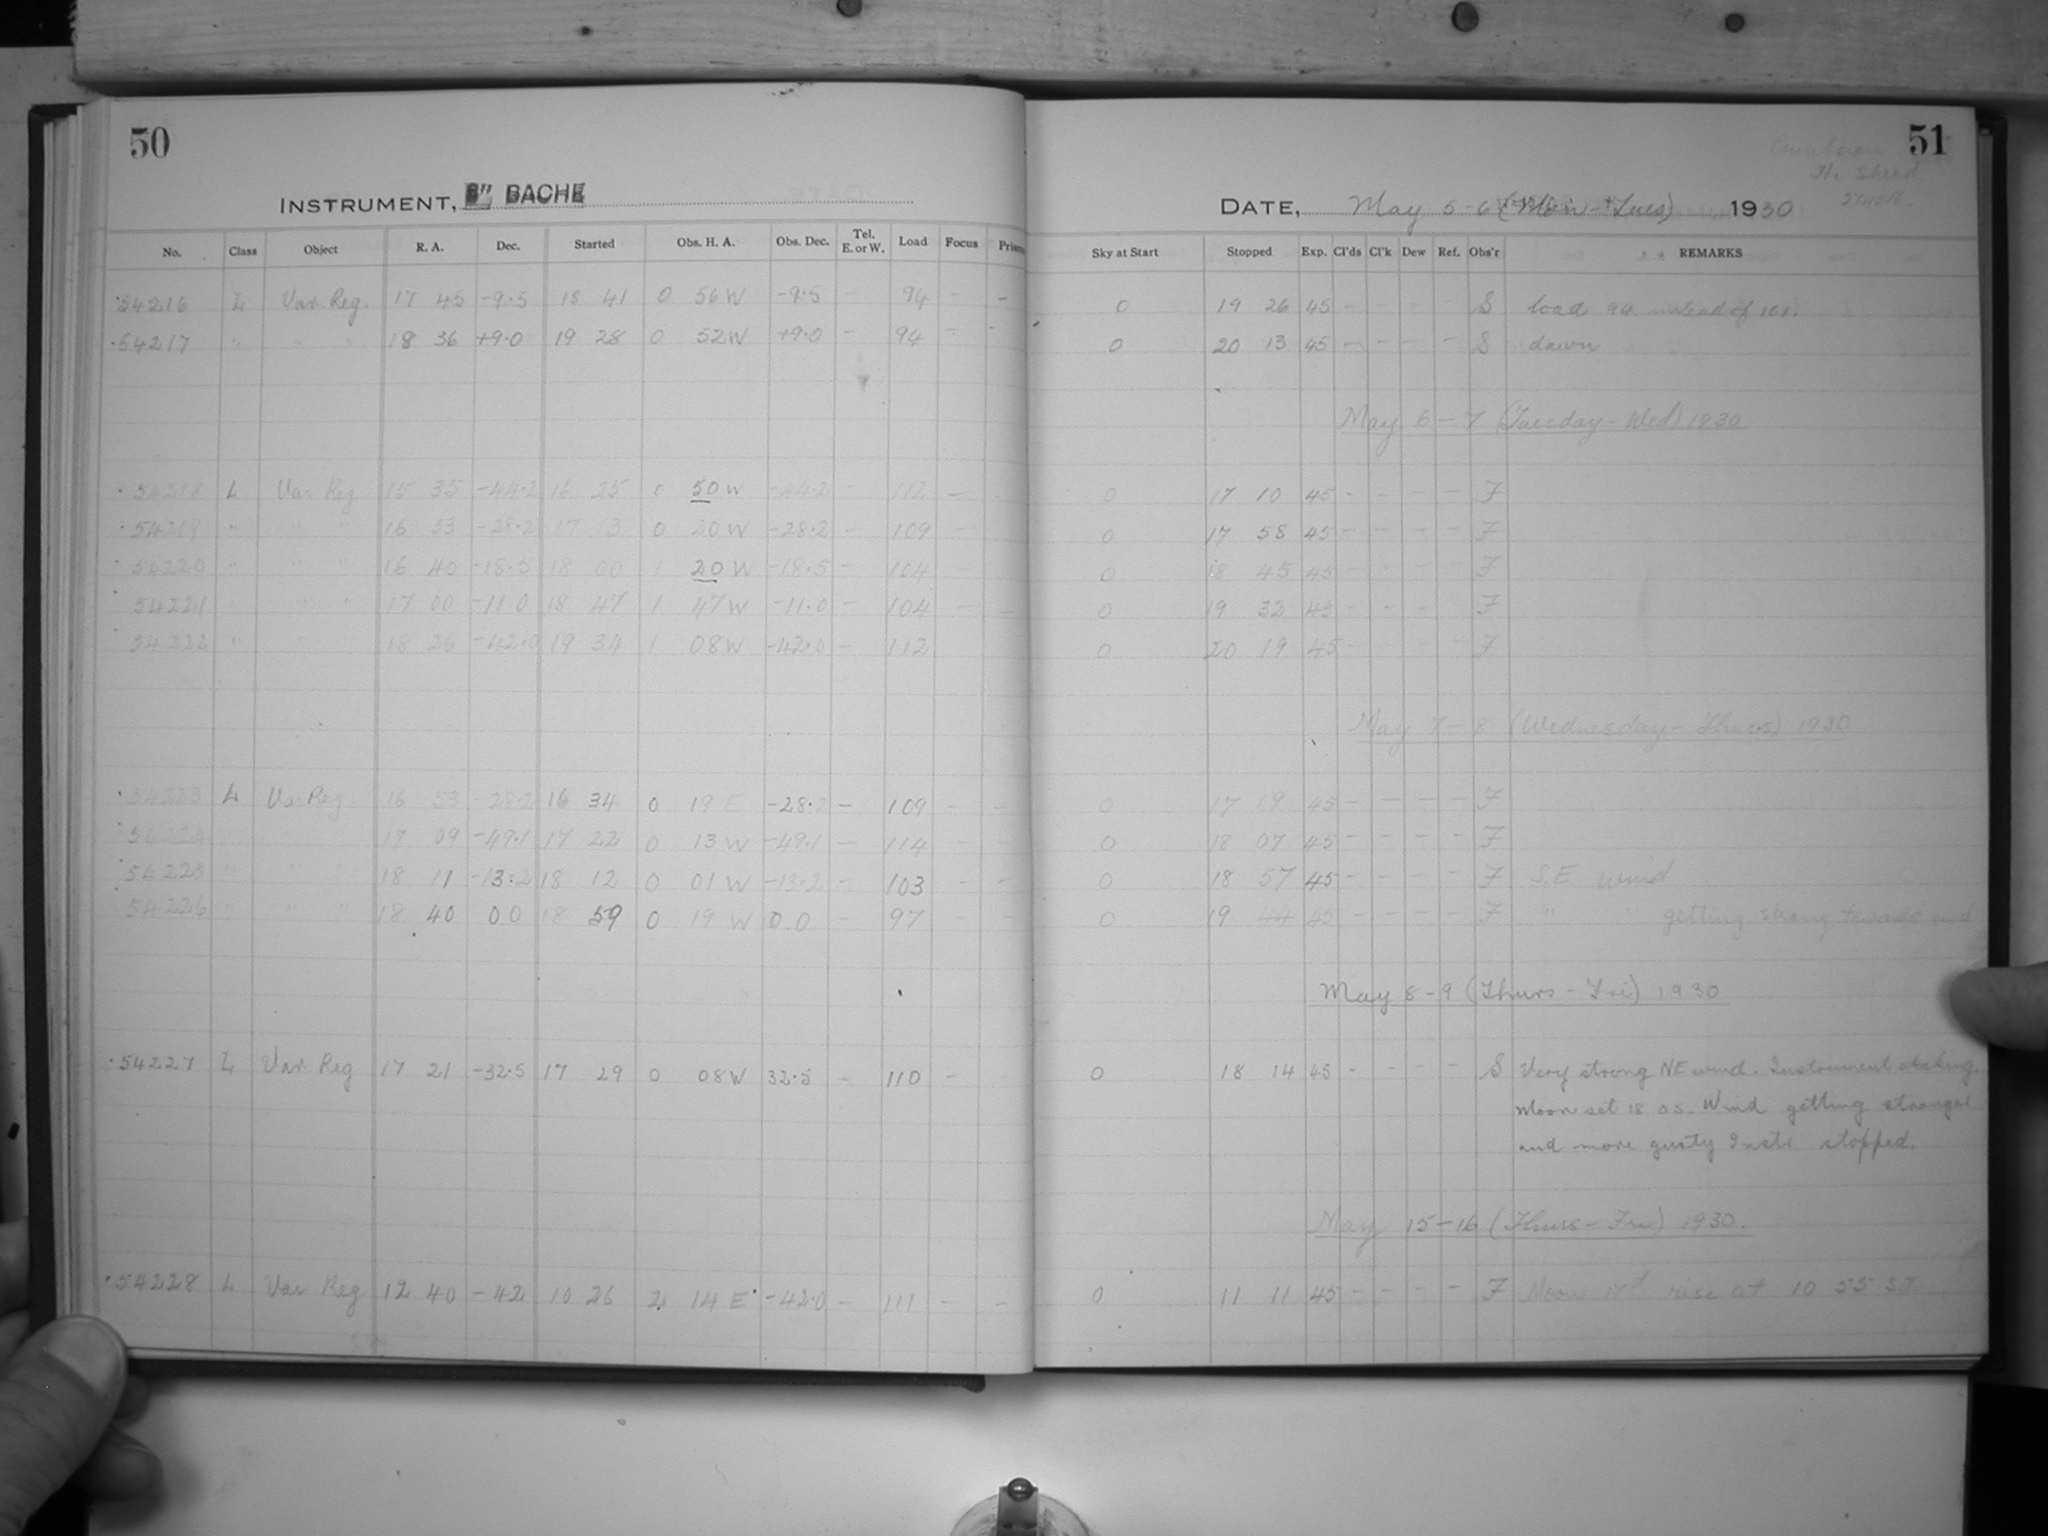 50
INSTRUMENT, 8" BACHE
No. Class Object R. A. Dec. Started Obs. H. A. Obs. Dec. Tel. E. or W. Load Focus Prism
54216 L Var Reg. 17 45 -9.5 18 41 0 56 W -9.5 - 94 - -
54217 " " " 18 36 +9.0 19 28 0 52 W +9.0 - 94 - -
54218 L Var Reg 15 35 -44.2 16 25 0 50 W -44.2 - 112 - -
54219 " " " 16 53 -28.2 17 13 0 20 W -28.2 - 109 -
54220 " " " 16 40 -18.5 18 00 1 20 W -18.5 - 104 -
54221 " " " 17 00 -11.0 18 47 1 47 W -11.0 - 104 - -
54222 " " 18 26 -42.0 19 34 1 08 W -42.0 - 112
54223 L Var Reg 16 53 -28.2 16 34 0 19 E -28.2 - 109 - -
54224 17 09 -49.1 17 22 0 13 W -49.1 - 114 - -
54225 " " " 18 11 -13.2 18 12 0 01 W -13.2 - 103 - -
54226 " " " 18 40 0 0 18 59 0 19 W 0.0 - 97 - -
54227 L Var Reg 17 21 -32.5 17 29 0 08 W 32.5 - 110 - -
54228 L Var Reg 12 40 -42 10 26 2 14 E -42.0 - 111 - -
51
H. Speed
DATE, May 5-6 (Mon-Tues) 1930
Sky at Start Stopped Exp. Cl'ds Cl'k Dew Ref. Obs'r REMARKS
0 19 26 45 - - - - S load 94 instead of 101.
0 20 13 45 - - - - S dawn
May 6-7 (Tuesday-Wed) 1930
0 17 10 45 - - - - F
0 17 58 45 - - - - F
0 18 45 45 - - - - F
0 19 32 45 - - - - F
0 20 19 45 - - - - F
May 7-8 (Wednesday-Thurs) 1930
0 17 19 45 - - - - F
0 18 07 45 - - - - F
0 18 57 45 - - - - F S.E. wind
0 19 44 45 - - - - F " " getting strong towards end
May 8-9 (Thurs-Fri) 1930
0 18 14 45 - - - - S Very strong NE wind. Instrument shaking.
Moon set 18 05. Wind getting stronger
and more gusty Instr stopped.
May 15-16 (Thurs-Fri) 1930.
0 11 11 45 - - - - F Moon 17d rise at 10 55 S.T.